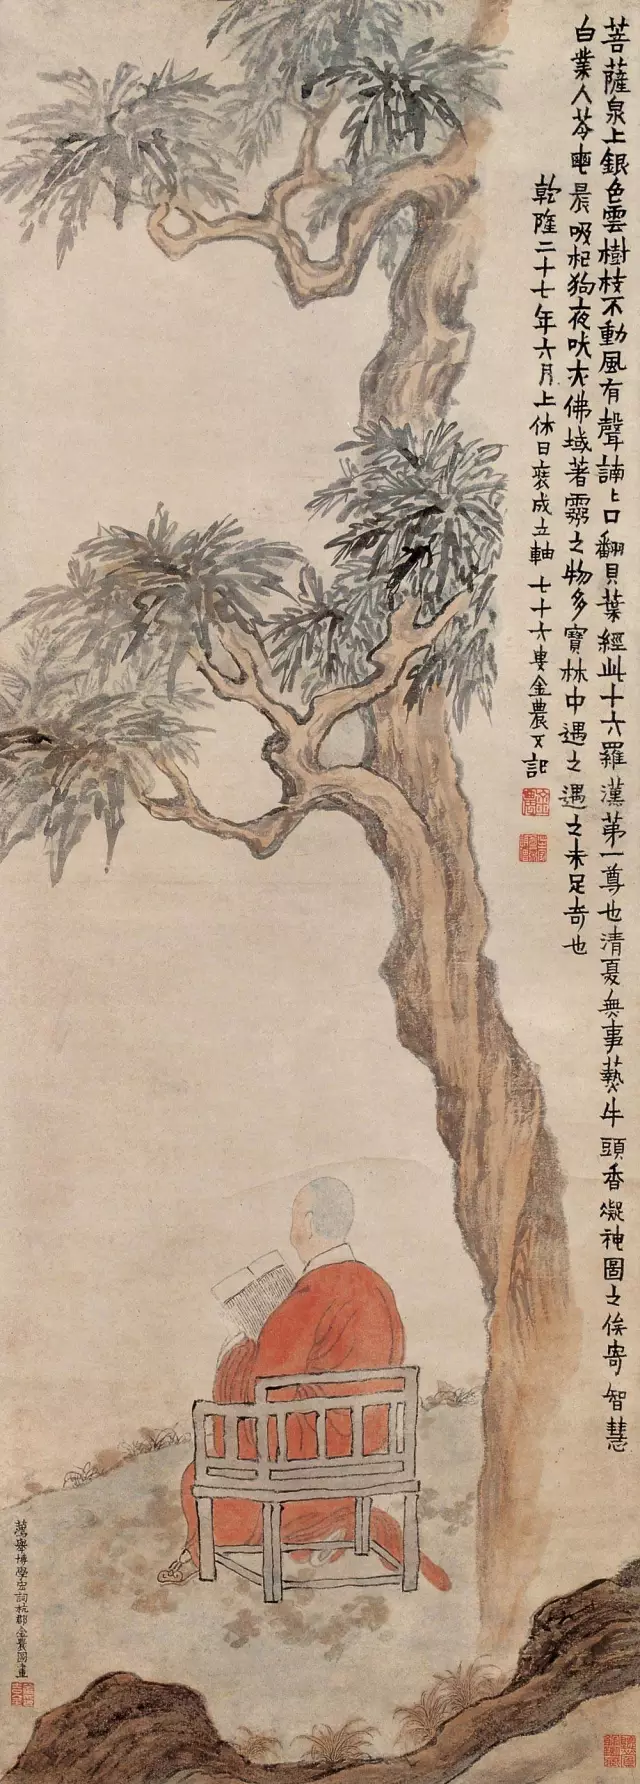 菩薩泉上銀色雲樹枝不動風有聲諵〻口翻貝葉經此十六羅漢第一尊也清夏無事爇牛頭香凝神圖之俟寄智慧
白業人苓龜晨吸杞狗夜吠尤佛域著靈之物多寶林中遇之遇之未足奇也
乾隆二十七年六月上休日裝成立軸七十六叟金農又記
薦舉博學宏詞杭郡金農圖畫